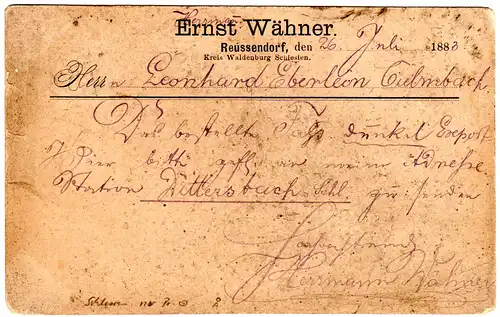 Herrmann
Ernst Wähner.
Reussendorf, den 26 Juli 1883
Kreis Waldenburg Schlesien.
Herrn Leonhard Eberlein, Culmbach
Das bestellte Fass dunkel Export
Bier bitte gefl. an meine Adresse
Station Dittersbach Schl zu senden
Herrmann Wähner